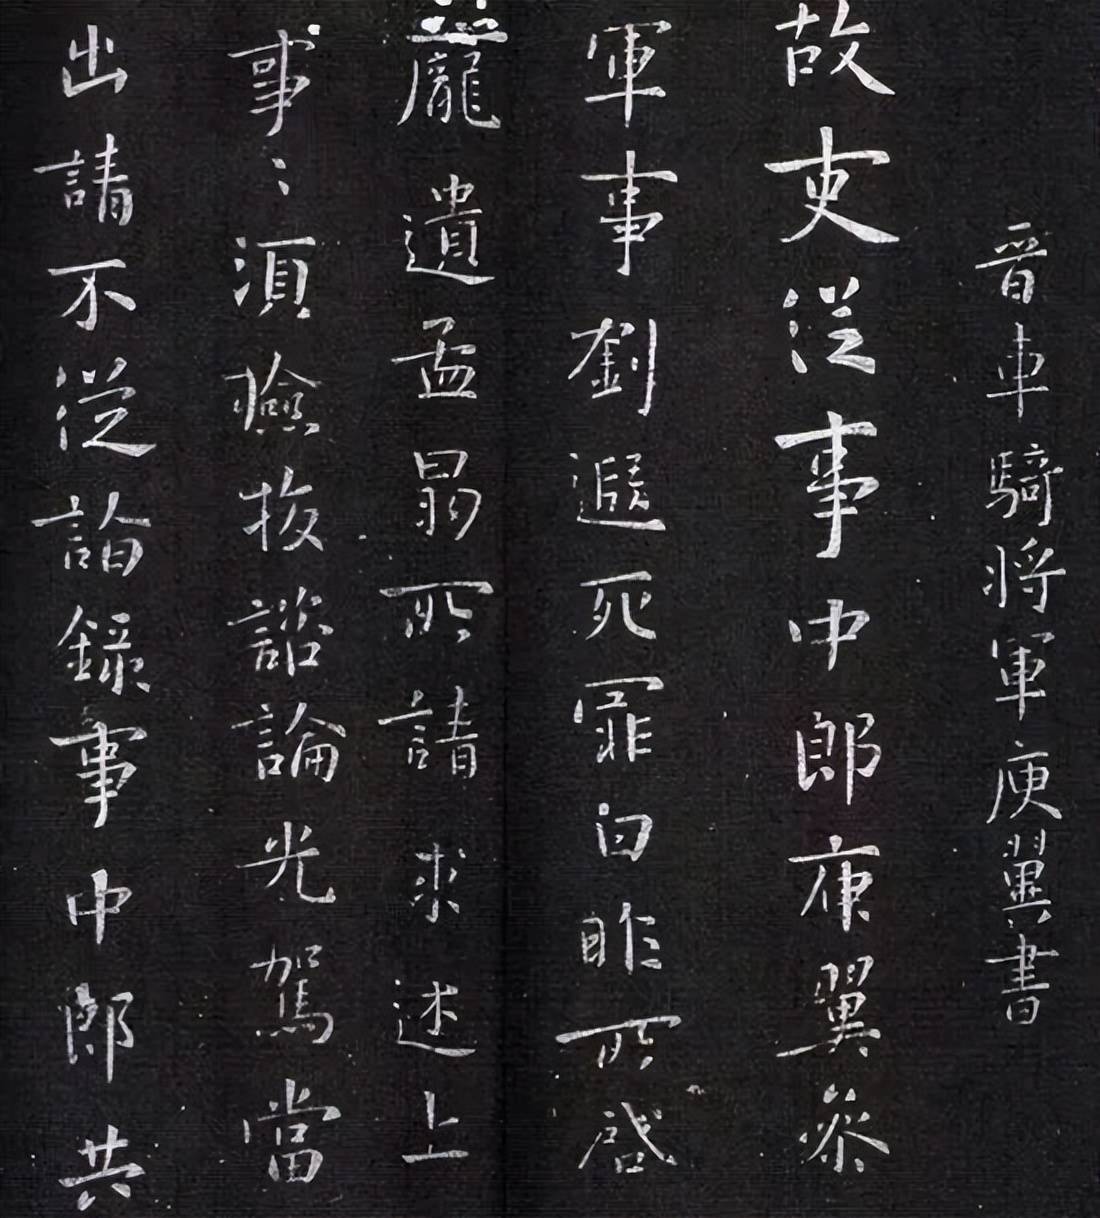 晉車騎將軍庾翼書
故吏從事中郎庾翼參
軍事劉遐死罪白昨所啓
龐遺孟昺所請求述上
事〻須檢校諮論光駕當
出請不從詣錄事中郎共